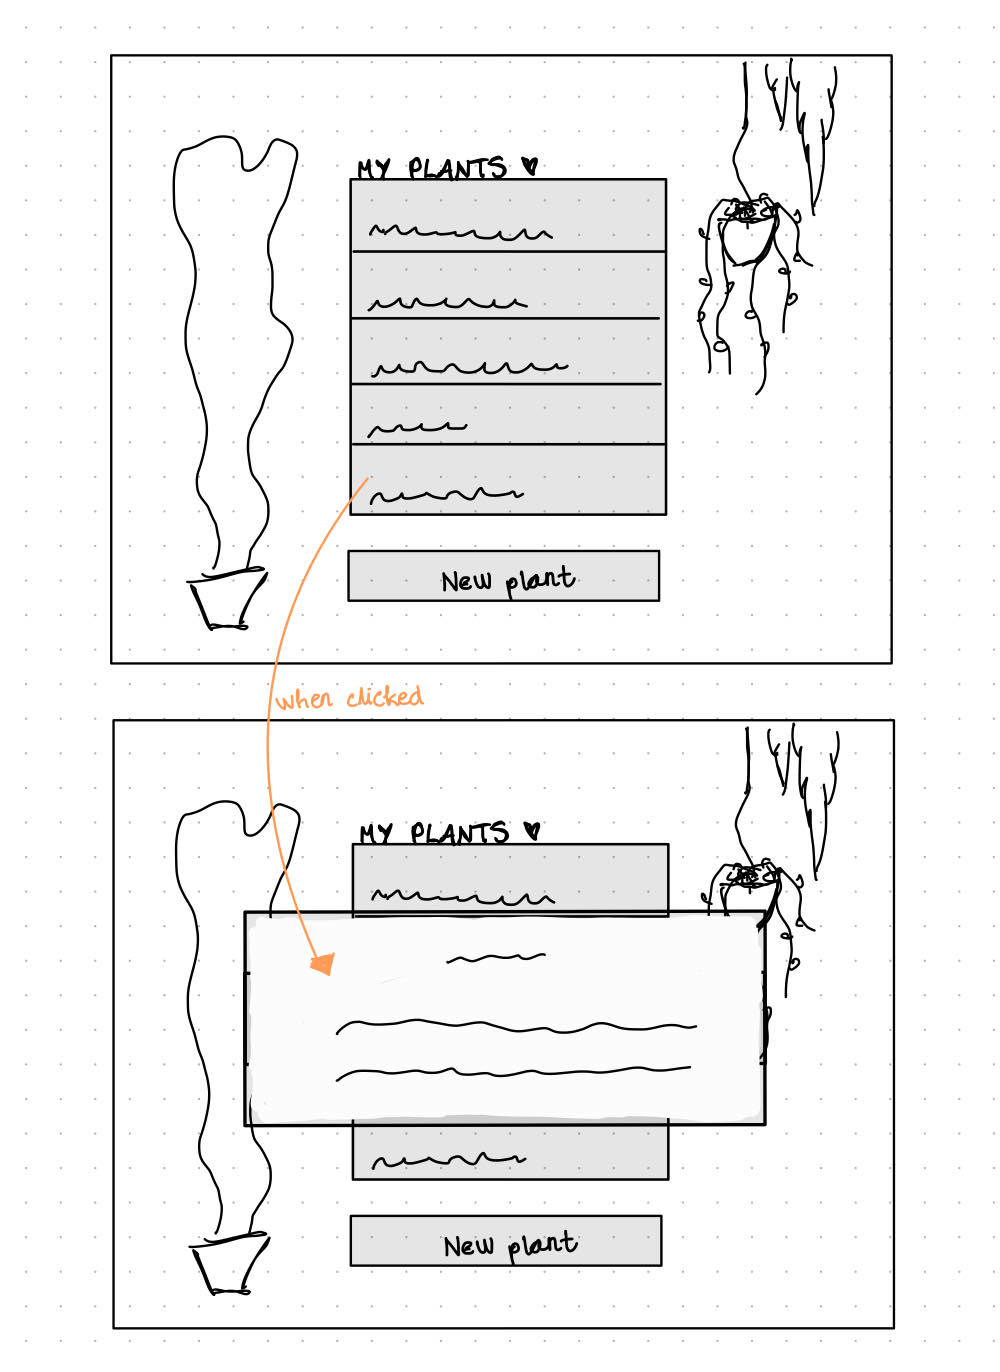 MY PLANTS ♥
New plant
when clicked
MY PLANTS ♥
New plant